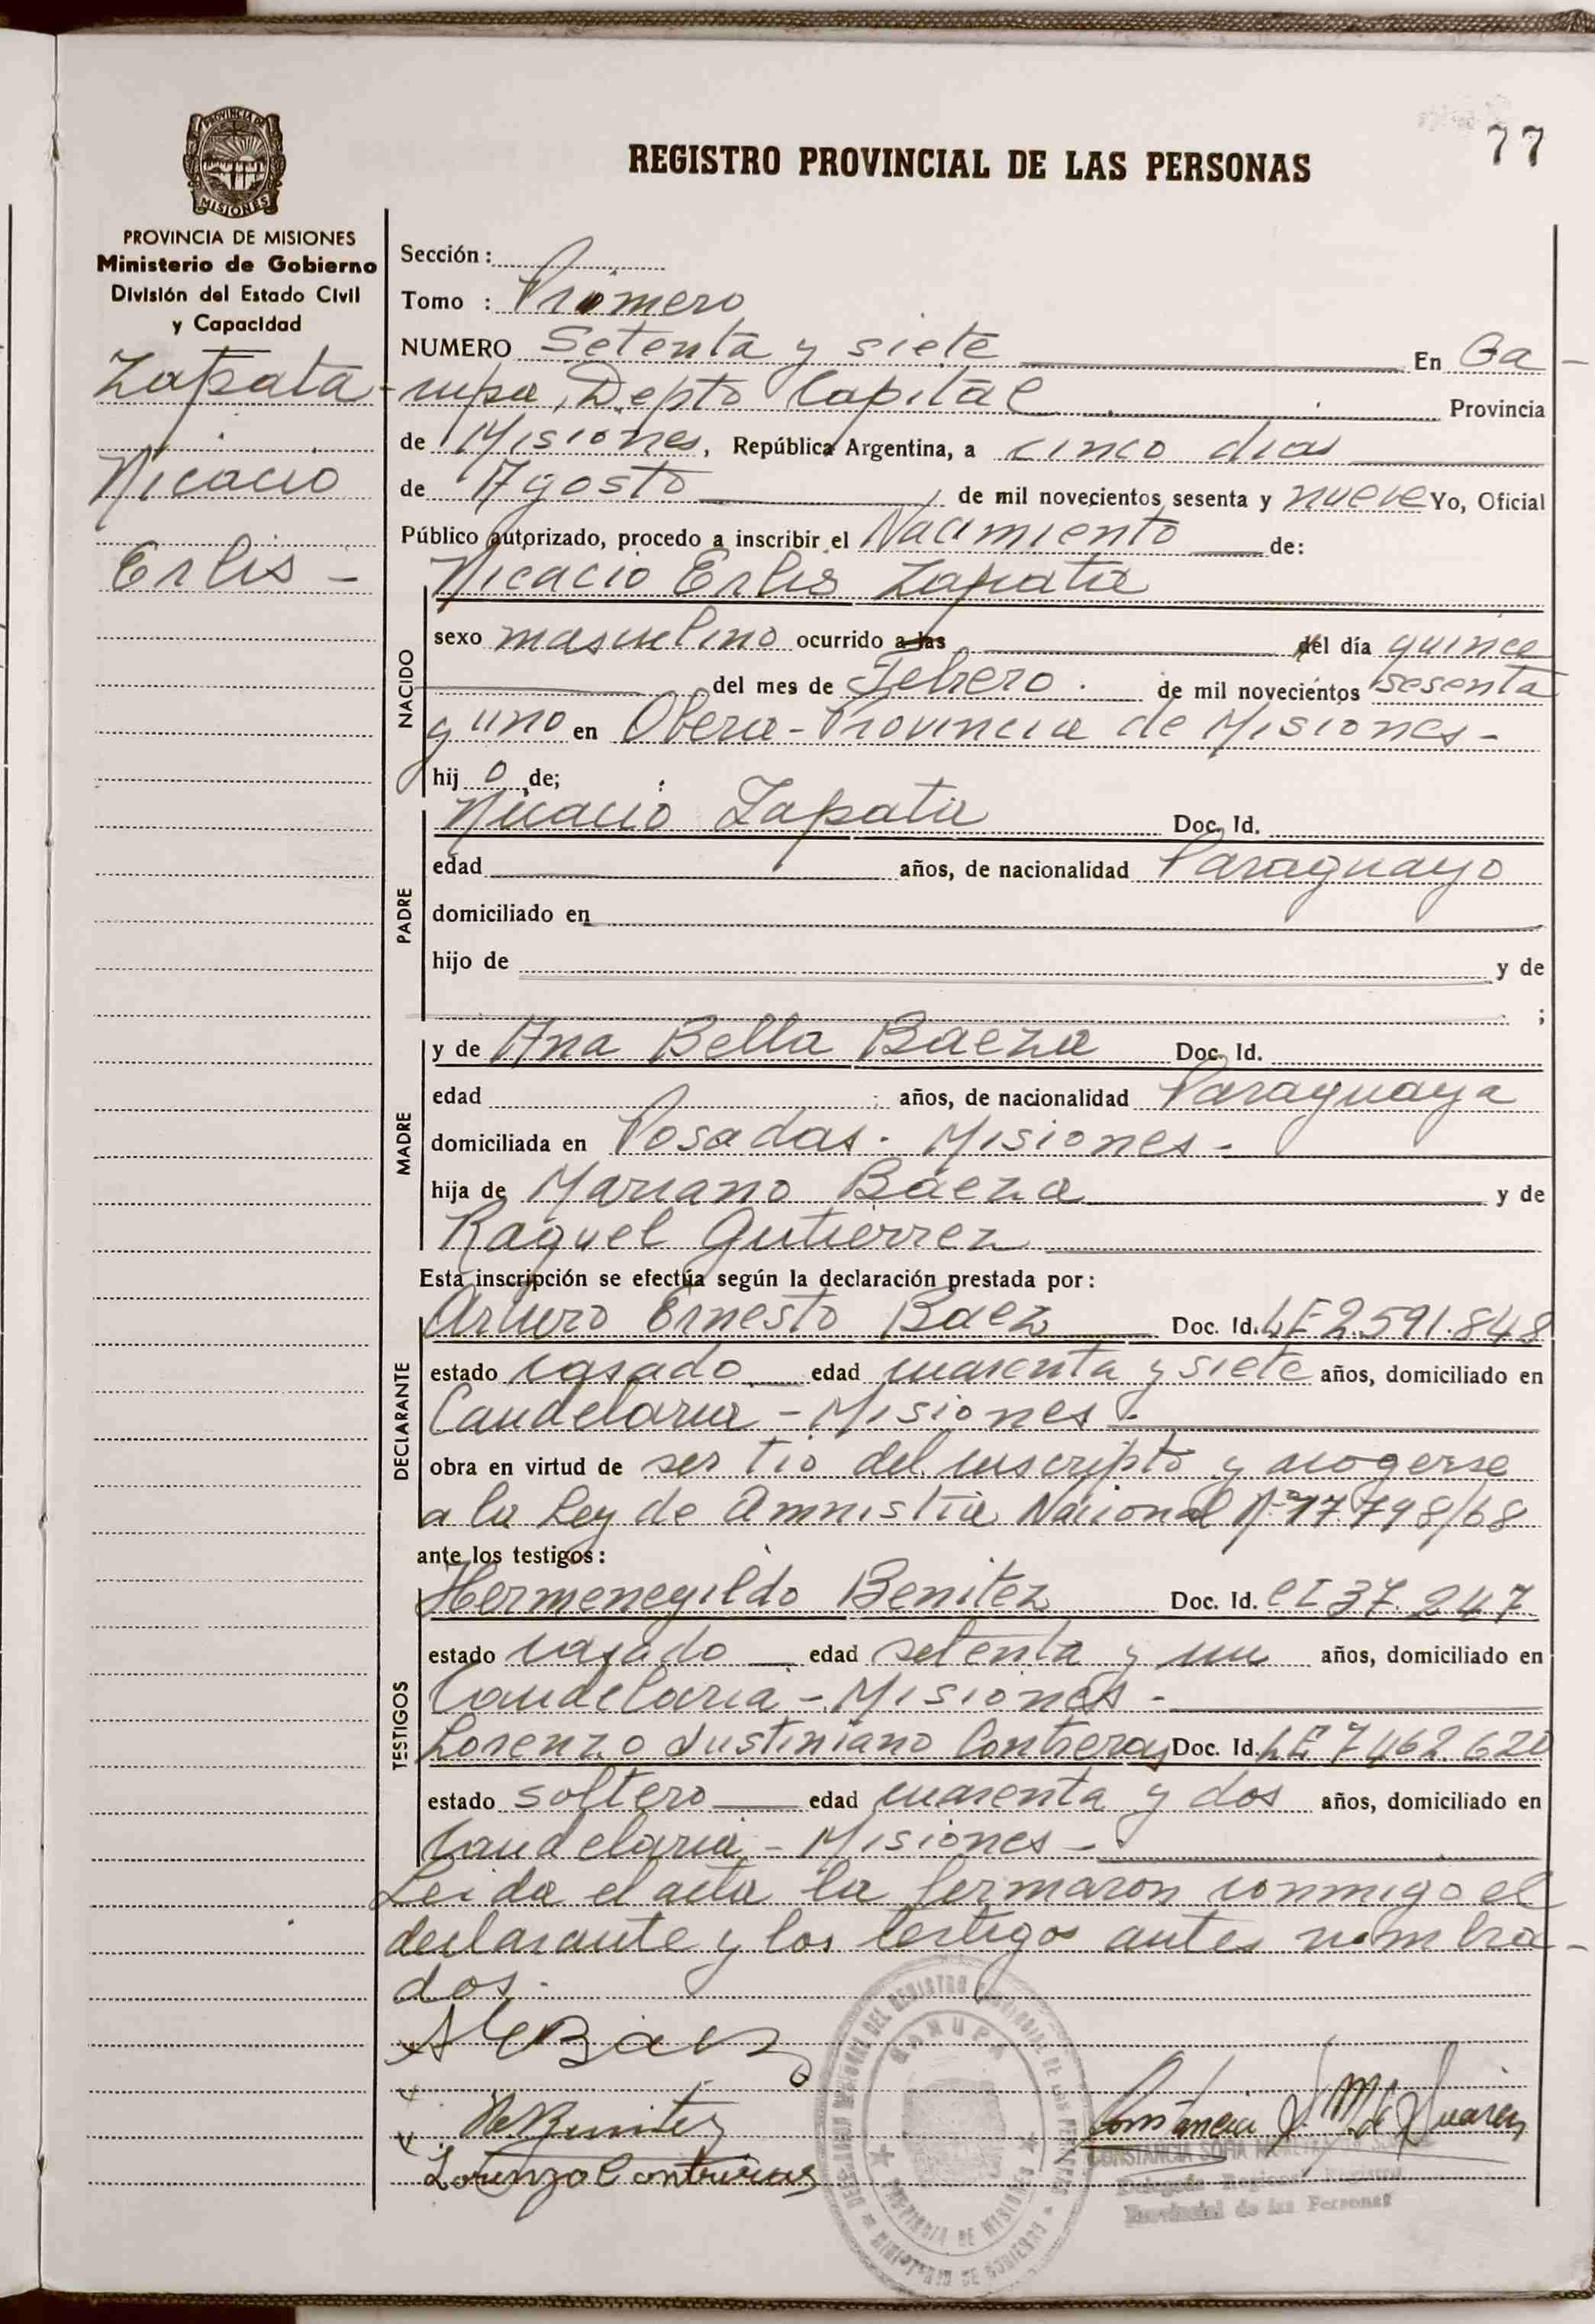 77
REGISTRO PROVINCIAL DE LAS PERSONAS
PROVINCIA DE
MISIONES
PROVINCIA DE MISIONES
Ministerio de Gobierno
División del Estado Civil
y Capacidad
Zapata
Nicacio
Erlis -
Sección:
Tomo : Primero
NUMERO Setenta y siete En Ga-
rupa, Depto Capital Provincia
de Misiones, República Argentina, a cinco dias
de Agosto, de mil novecientos sesenta y nueve Yo, Oficial
Público autorizado, procedo a inscribir el Nacimiento de:
NACIDO
Nicacio Erlis Zapata
sexo masculino ocurrido a las del día quince
del mes de Febrero. de mil novecientos sesenta
y uno en Obera - Provincia de Misiones -
hijo de;
PADRE
Nicacio Zapata Doc. Id.
edad años, de nacionalidad Paraguayo
domiciliado en
hijo de y de
;
MADRE
y de Ana Bella Baeza Doc. Id.
edad años, de nacionalidad Paraguaya
domiciliada en Posadas. Misiones -
hija de Mariano Baeza y de
Raquel Gutierrez
Esta inscripción se efectúa según la declaración prestada por:
DECLARANTE
Arturo Ernesto Baez Doc. Id. LE 2.591.848
estado casado edad cuarenta y siete años, domiciliado en
Candelaria - Misiones -
obra en virtud de ser tio del inscripto y acogerse
a la Ley de Amnistia Nacional Nº 17.798/68
ante los testigos:
TESTIGOS
Hermenegildo Benitez Doc. Id. CI 37.247
estado casado edad setenta y un años, domiciliado en
Candelaria - Misiones -
Lorenzo Justiniano Contreras Doc. Id. LE 7462.620
estado soltero edad cuarenta y dos años, domiciliado en
Candelaria - Misiones -
Leida el acta la firmaron conmigo el
declarante y los testigos antes nombra-
dos.
AEBaez
H Benitez
Lorenzo Contreras
Constancia S. M. de Suarez
CONSTANCIA SOFIA
Delegada Regional Registro
Provincial de las Personas
GARUPA
PROVINCIA DE MISIONES
MINISTERIO DE GOBIERNO